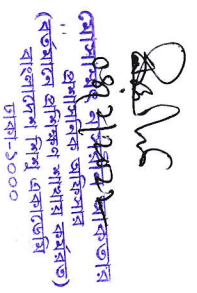 আকতার
প্রশাসনিক অফিসার
(বর্তমানে প্রশিক্ষণ শাখায় কর্মরত)
বাংলাদেশ শিশু একাডেমি
ঢাকা-১০০০